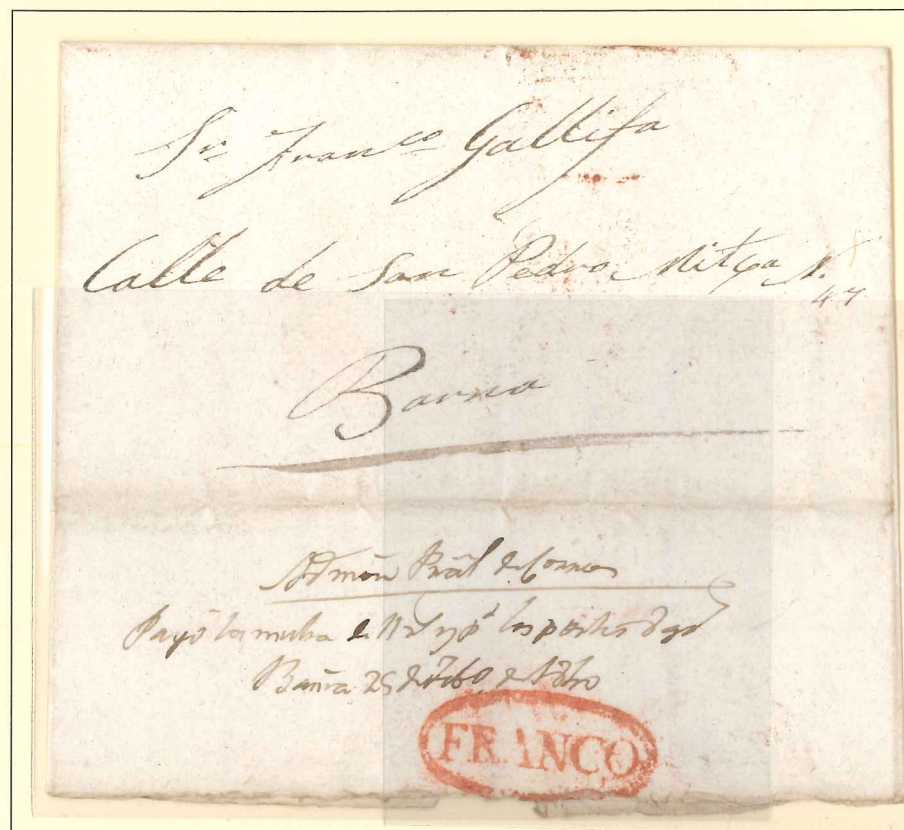 Sr. Franco Gallifa
Calle de San Pedro Mitja N.
47
Barna
Admon Pral de Correos
Pagó la multa de y pr los portes
Barna 25 de de 1840
FRANCO